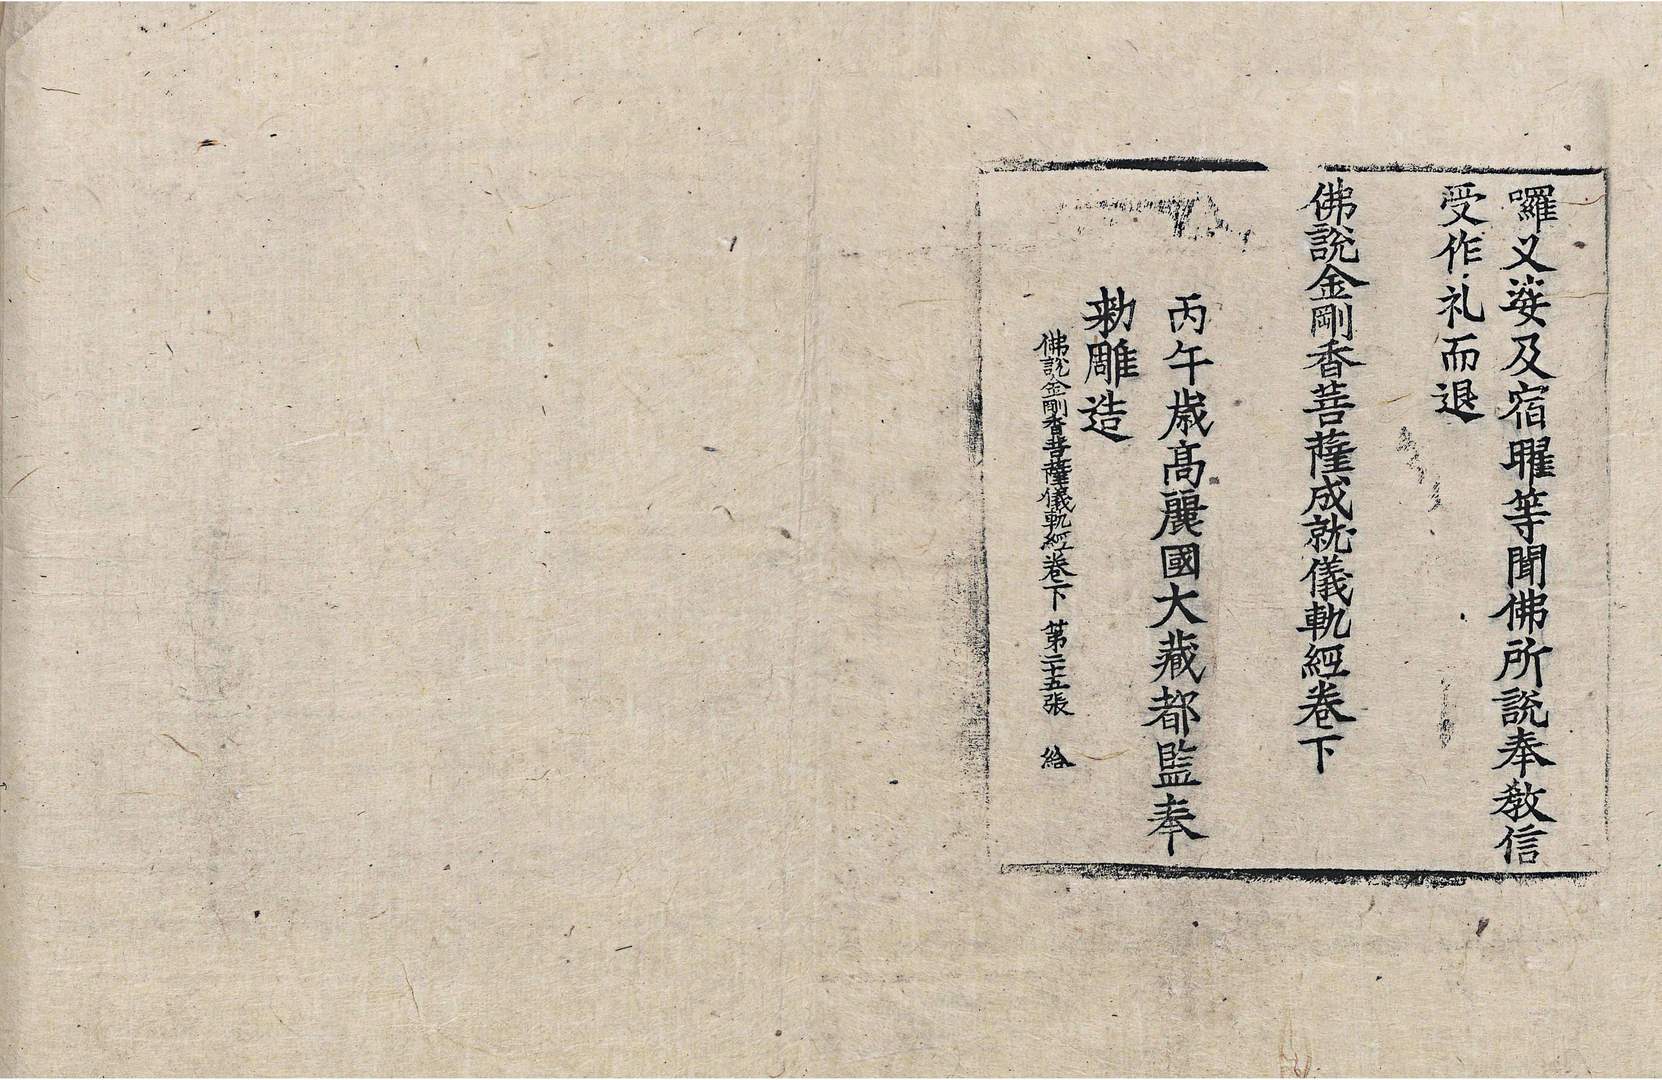 囉叉娑及宿曜等聞佛所說奉教信
受作礼而退
佛說金剛香菩薩成就儀軌經卷下
丙午歲高麗國大藏都監奉
勑雕造
佛說金剛香菩薩儀軌經卷下 第二十五張 給